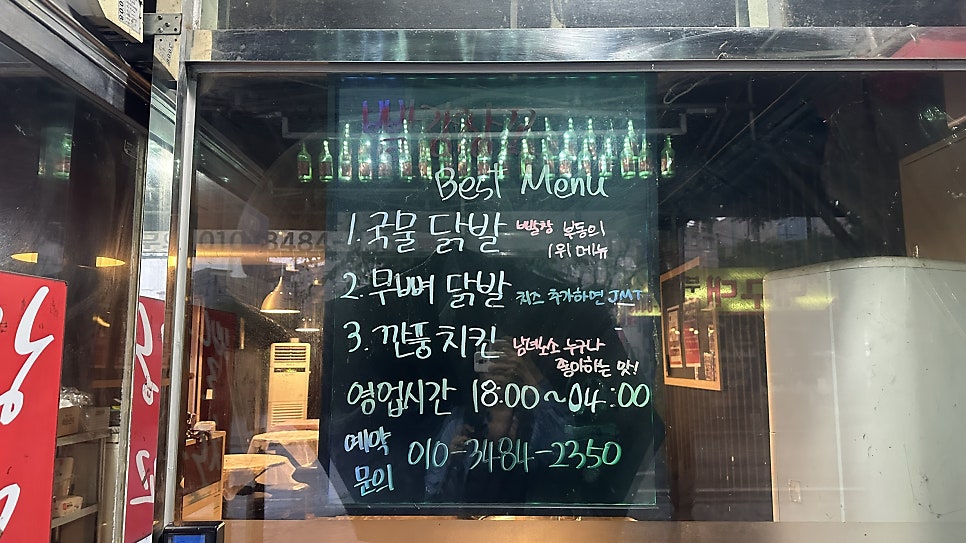 Best Menu
1. 국물 닭발 빨창 부동의
1위 메뉴
2. 무뼈 닭발 치즈 추가하면 JMT
3. 깐풍치킨 남녀노소 누구나
좋아하는 맛!
영업시간 18:00~04:00
예약
문의 010-3484-2350
010-3484-